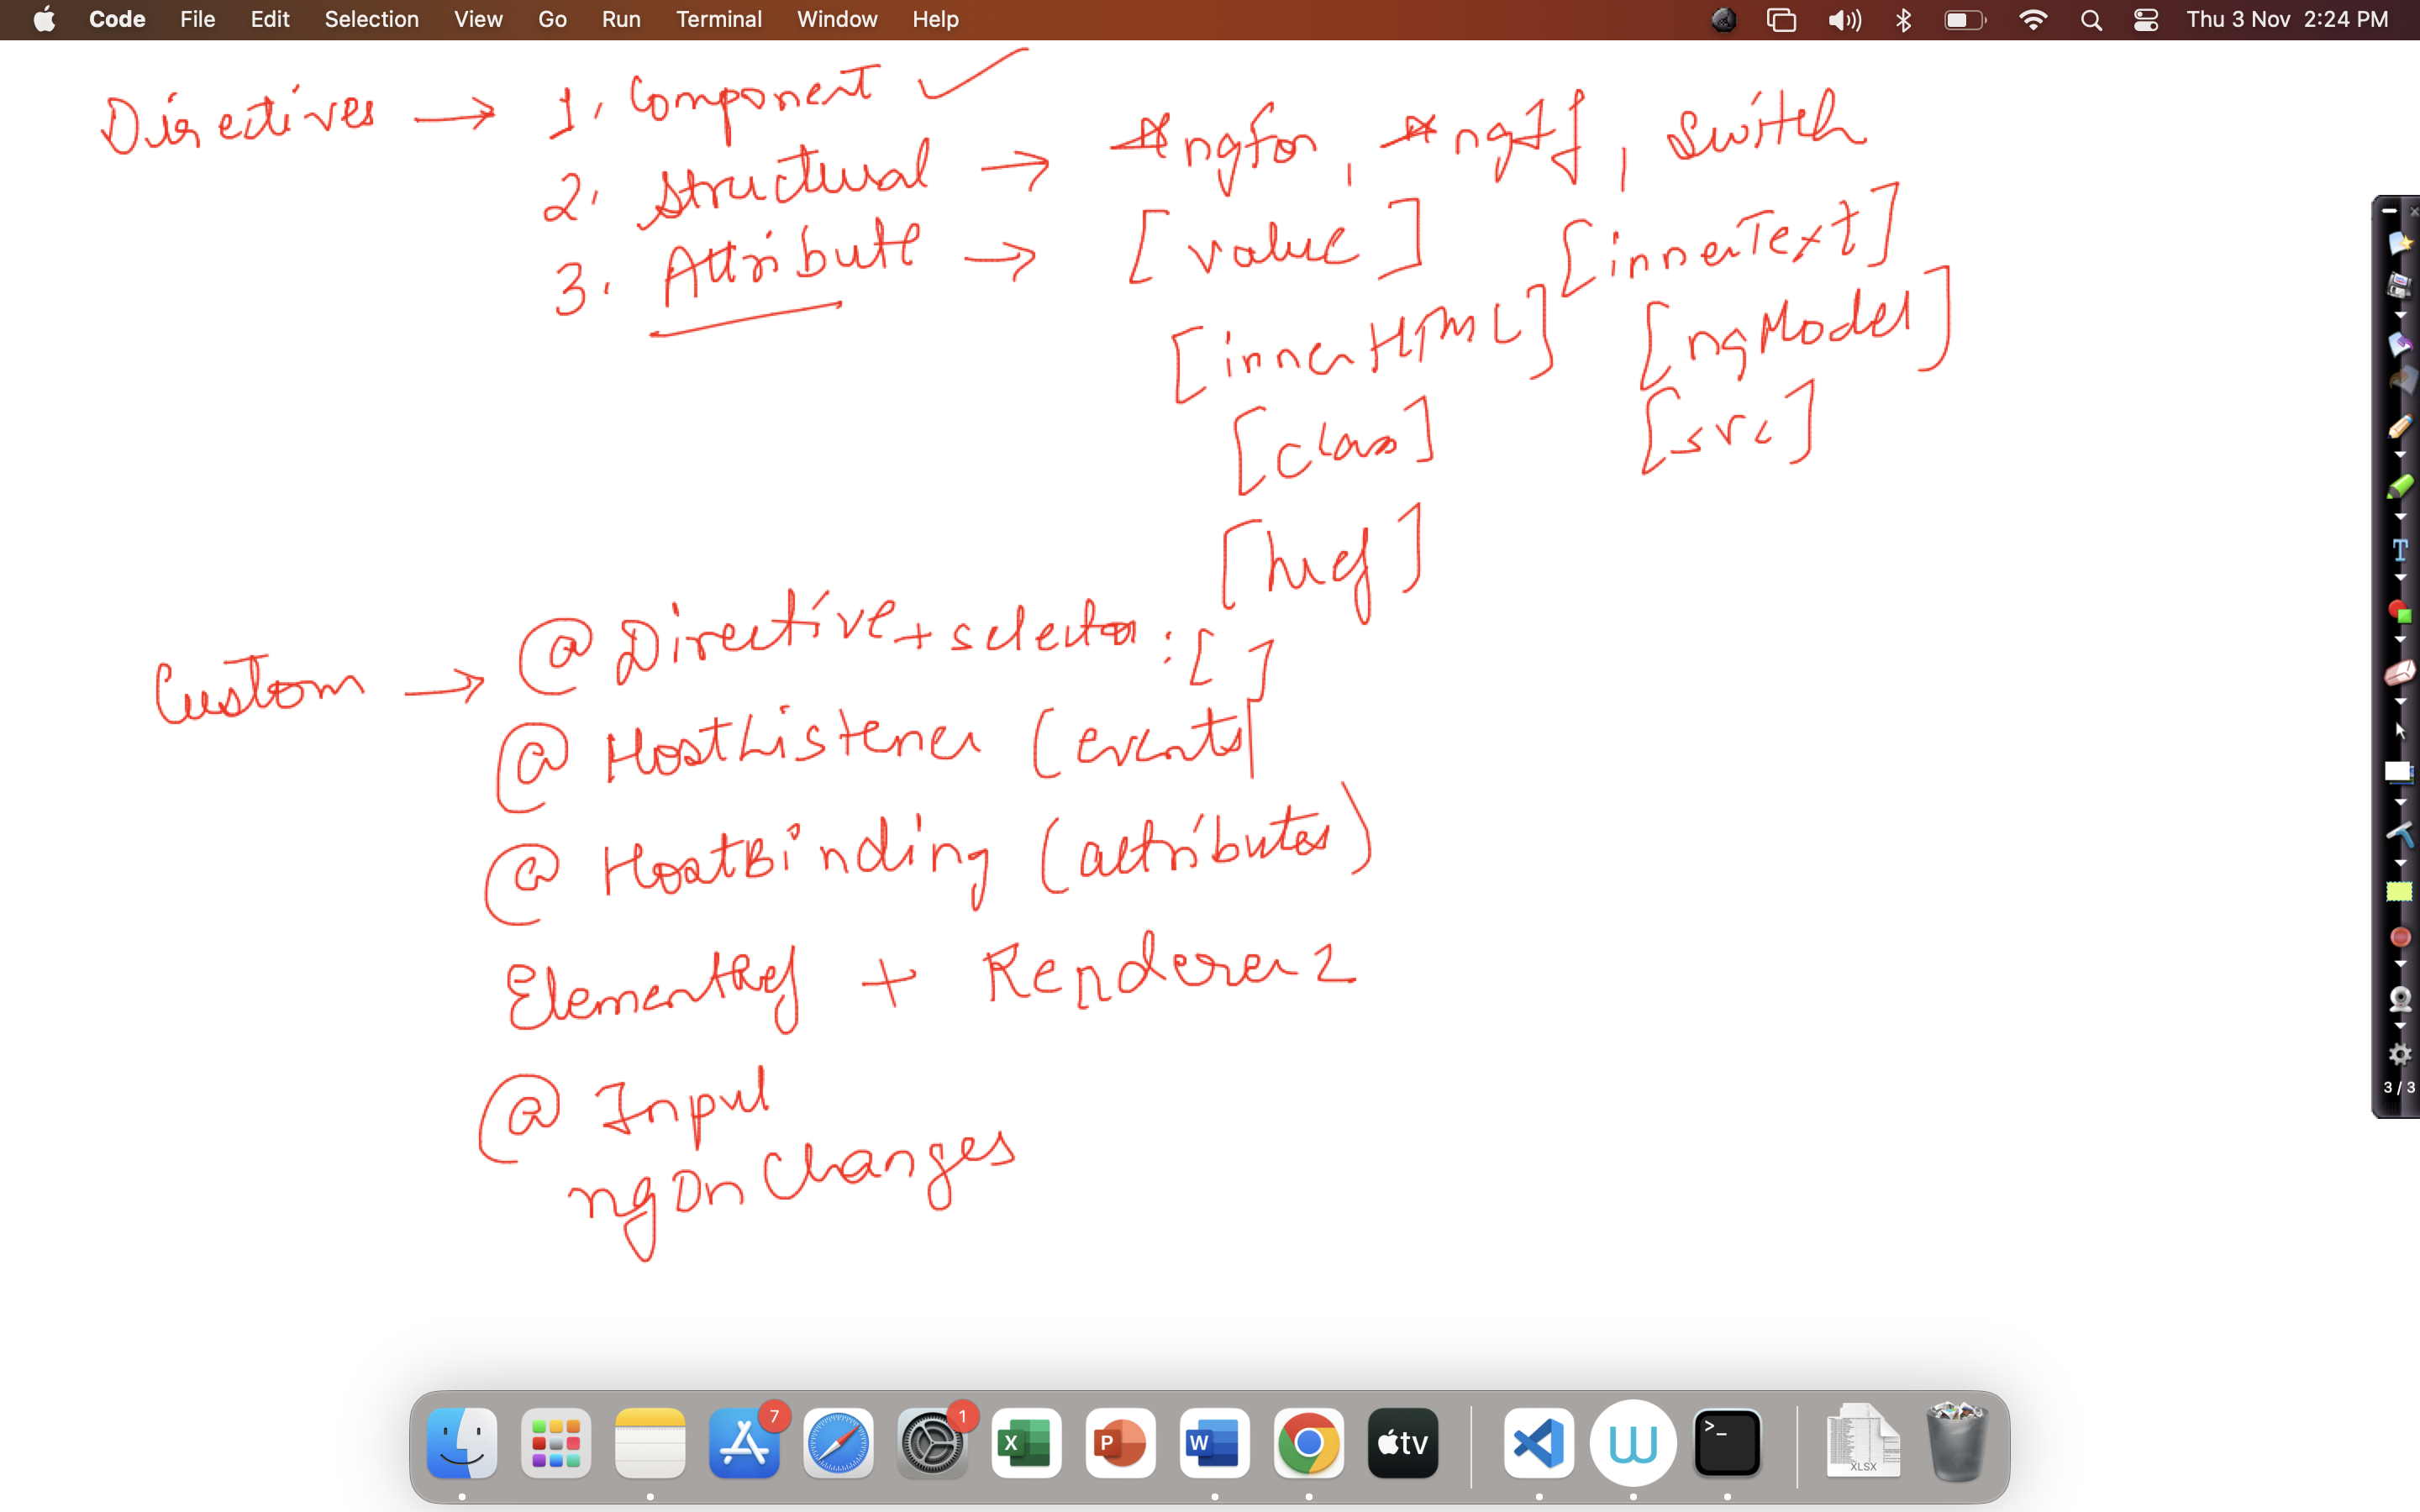 Code File Edit Selection View Go Run Terminal Window Help Thu 3 Nov 2:24 PM
Directives → 1. Component ✓
2. Structural → *ngFor, *ngIf, Switch
3. Attribute → [value] [innerText]
[innerHTML] [ngModel]
[class] [src]
[href]
Custom → @Directive + selector : [ ]
@HostListener (events)
@HostBinding (attributes)
ElementRef + Renderer2
@Input
ngOnChanges
3 / 3
7 1 X P W tv W >_ XLSX